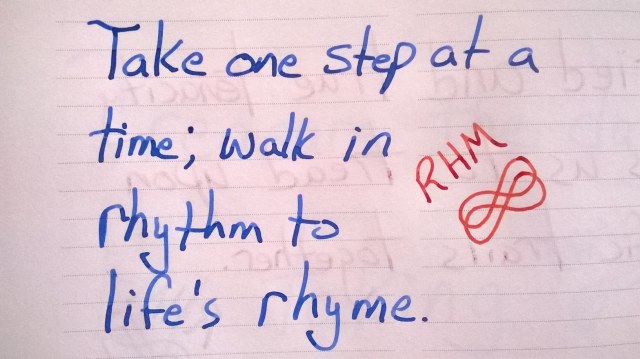 Take one step at a
time; walk in
RHM
rhythm to
life's rhyme.